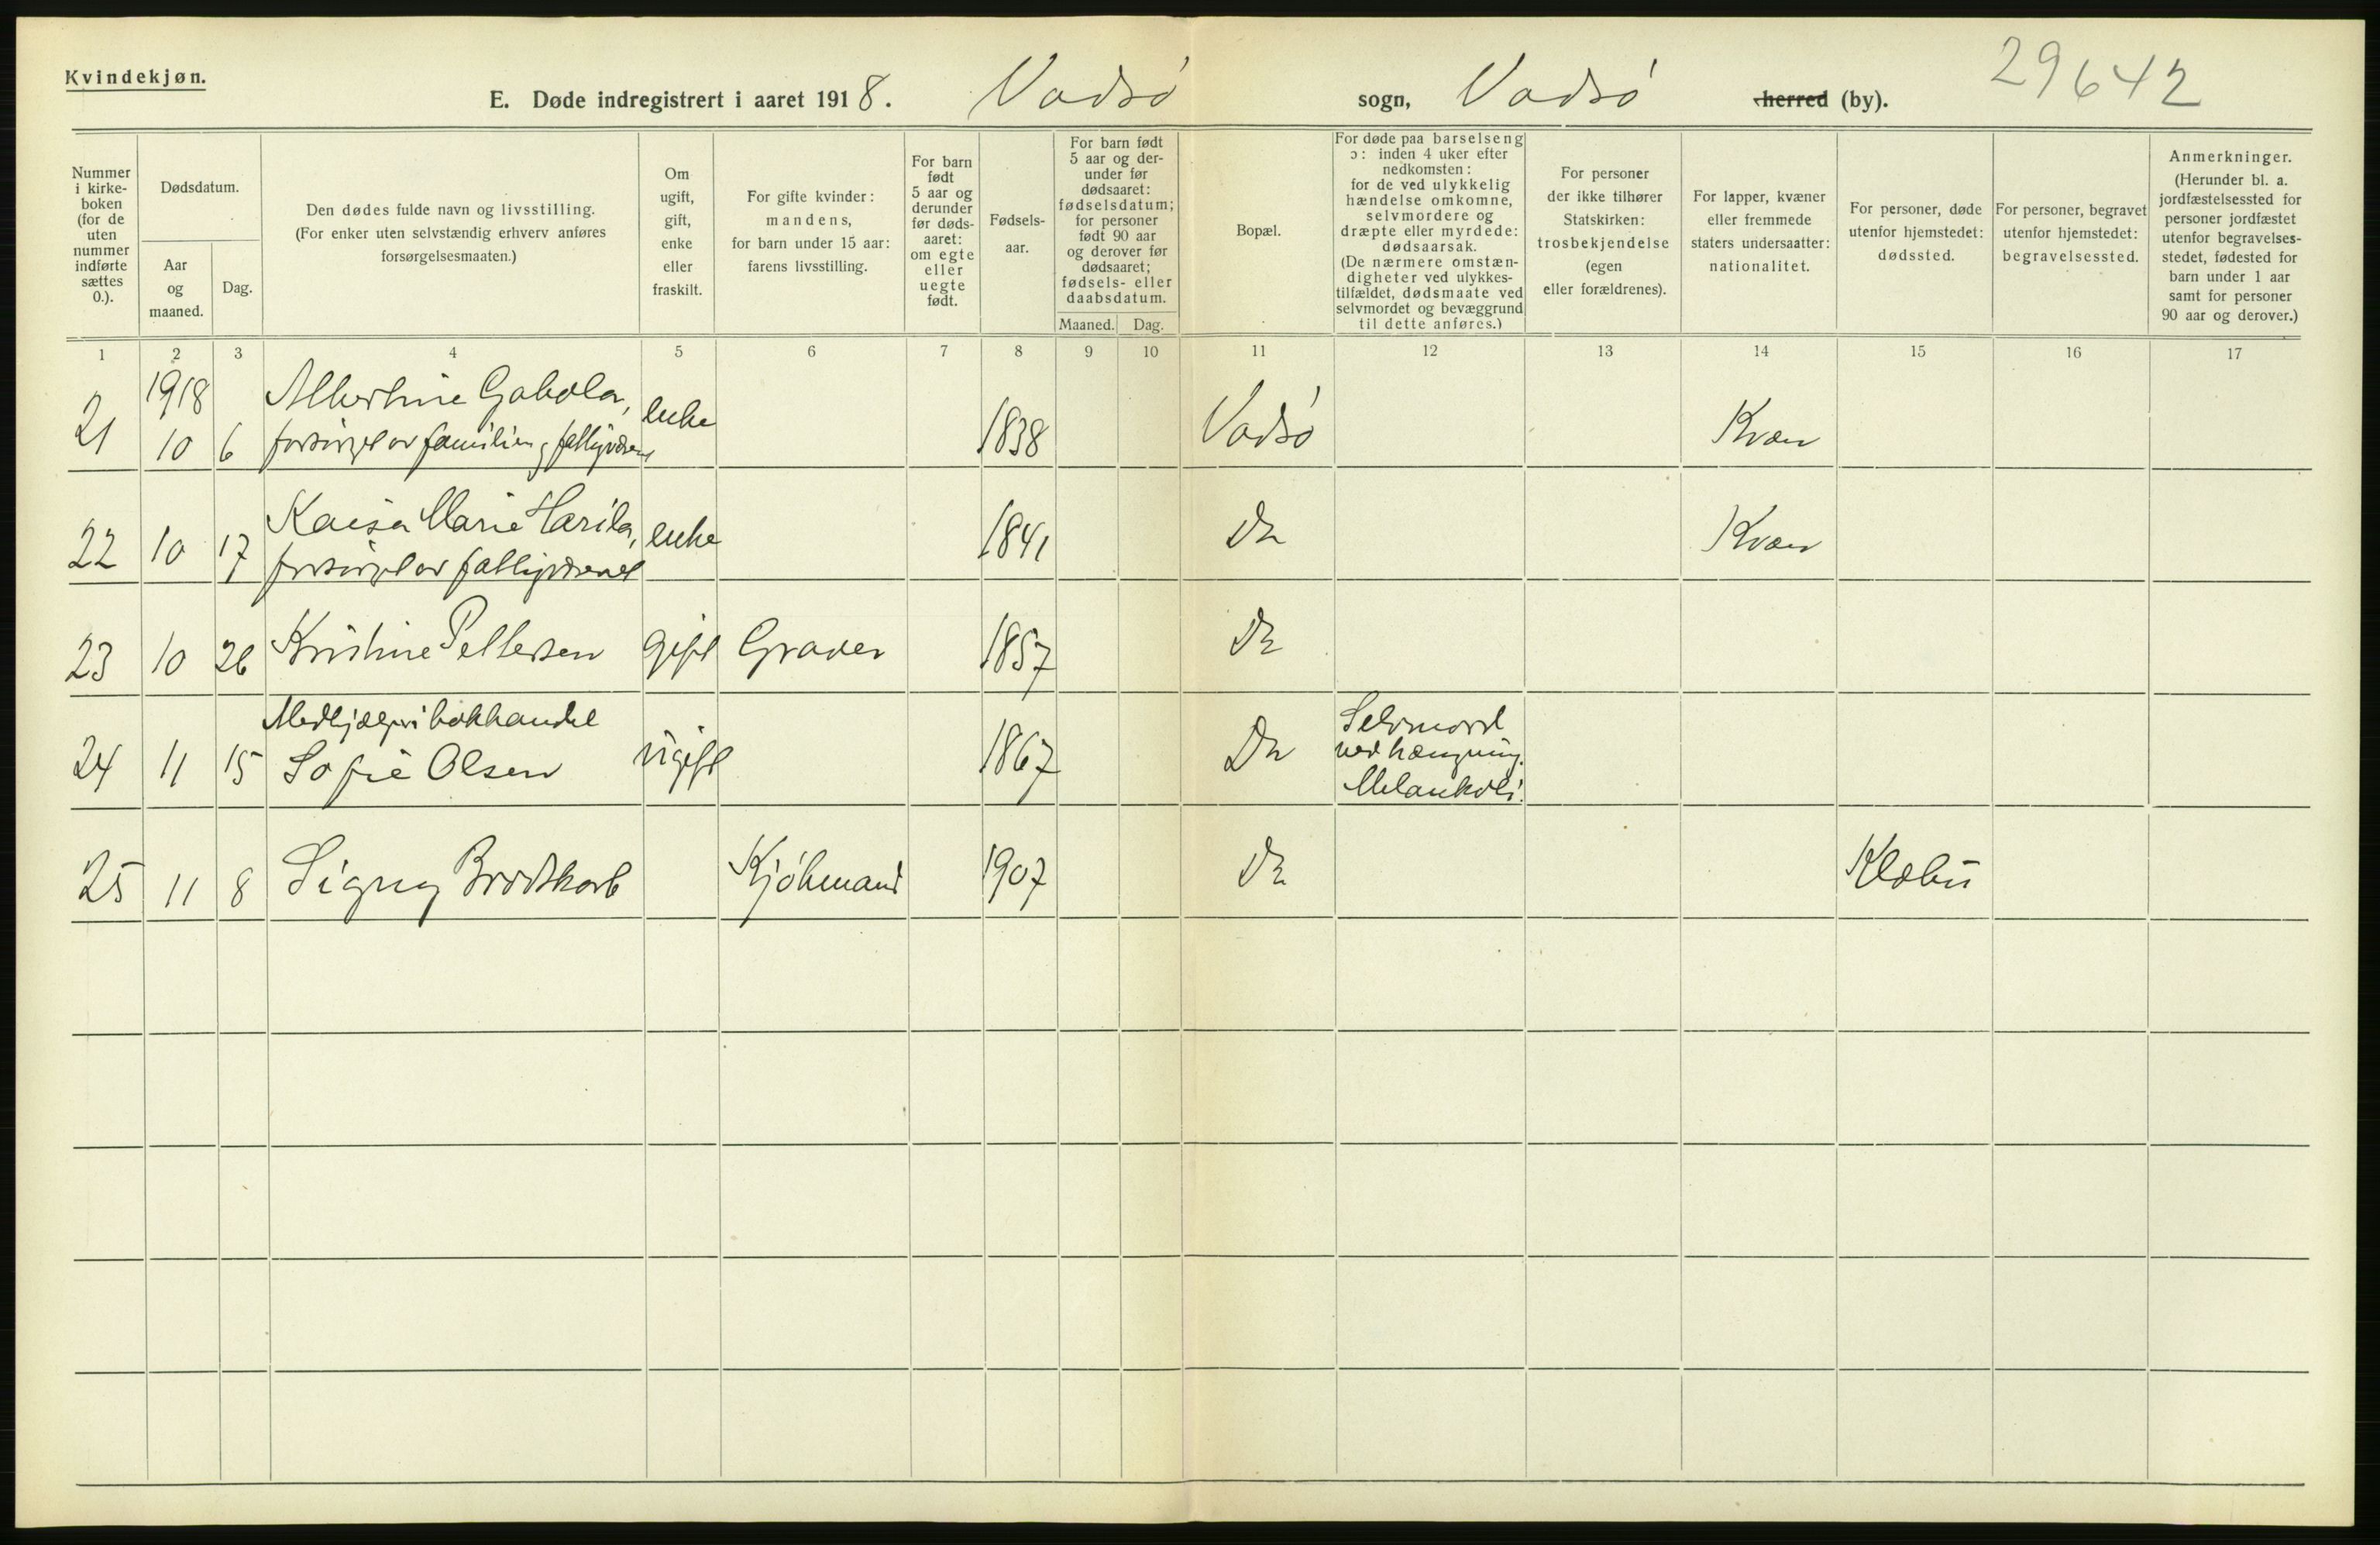 Kvindekjøn.
29642
E. Døde indregistrert i aaret 1918. Vadsø sogn, Vadsø herred (by).
Nummer i kirkeboken (for de uten nummer indførte sættes 0.).
Dødsdatum.
Aar og maaned.
Dag.
Den dødes fulde navn og livsstilling.
(For enker uten selvstændig erhverv anføres
forsørgelsesmaaten.)
Om ugift, gift, enke eller fraskilt.
For gifte kvinder: mandens, for barn under 15 aar: farens livsstilling.
For barn født 5 aar og derunder før dødsaaret: om egte eller uegte født.
Fødselsaar.
For barn født 5 aar og derunder før dødsaaret: fødselsdatum; for personer født 90 aar og derover før dødsaaret; fødsels- eller daabsdatum.
Maaned. Dag.
Bopæl.
For døde paa barselseng ɔ: inden 4 uker efter nedkomsten: for de ved ulykkelig hændelse omkomne, selvmordere og dræpte eller myrdede: dødsaarsak. (De nærmere omstændigheter ved ulykkestilfældet, dødsmaate ved selvmordet og bevæggrund til dette anføres.)
For personer der ikke tilhører Statskirken: trosbekjendelse (egen eller forældrenes).
For lapper, kvæner eller fremmede staters undersaatter: nationalitet.
For personer, døde utenfor hjemstedet: dødssted.
For personer, begravet utenfor hjemstedet: begravelsessted.
Anmerkninger. (Herunder bl. a. jordfæstelsessted for personer jordfæstet utenfor begravelsesstedet, fødested for barn under 1 aar samt for personer 90 aar og derover.)
1 2 3 4 5 6 7 8 9 10 11 12 13 14 15 16 17
1918
21 10 6 Albertine Gabola, enke 1838 Vadsø Kvæn
forsørget av familien og fattigvæsen
22 10 17 Kaisa Marie Harila, enke 1841 Do Kvæn
forsørget av fattigvæsenet
23 10 26 Kristine Pettersen gift Graver 1857 Do
Medhjælper i bokhandel
24 11 15 Sofie Olsen ugift 1867 Do Selvmord
ved hængning.
Melankoli.
25 11 8 Signy Brodtkorb Kjøbmand 1907 Do Klæbu